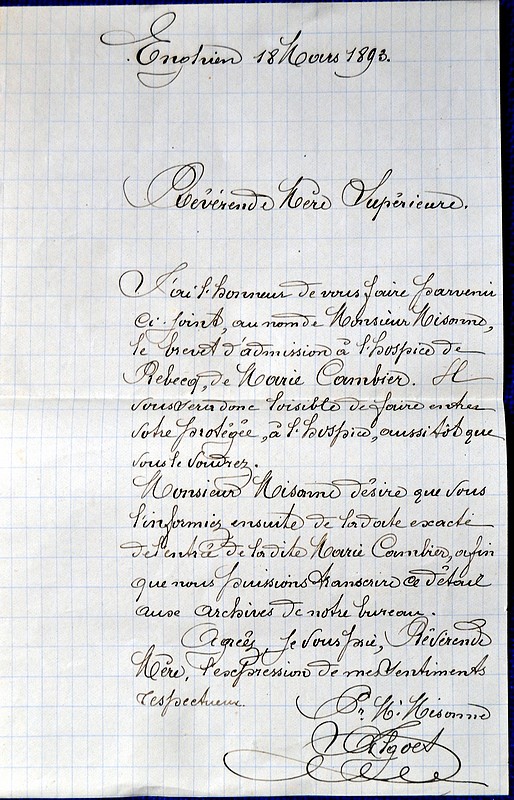 Enghien 18 Mars 1893.
Révérende Mère Supérieure.
J'ai l'honneur de vous faire parvenir
ci-joint, au nom de Monsieur Misonne,
le brevet d'admission à l'hospice de
Rebecq, de Marie Cambier. Il
vous sera donc loisible de faire entrer
votre protégée, à l'hospice, aussitôt que
vous le voudrez.
Monsieur Misonne désire que vous
l'informiez ensuite de la date exacte
de l'entrée de la dite Marie Cambier, afin
que nous puissions transcrire ce détail
aux archives de notre bureau.
Agréez, je vous prie, Révérende
Mère, l'expression de mes sentiments
respectueux
Pr. Mr. Misonne